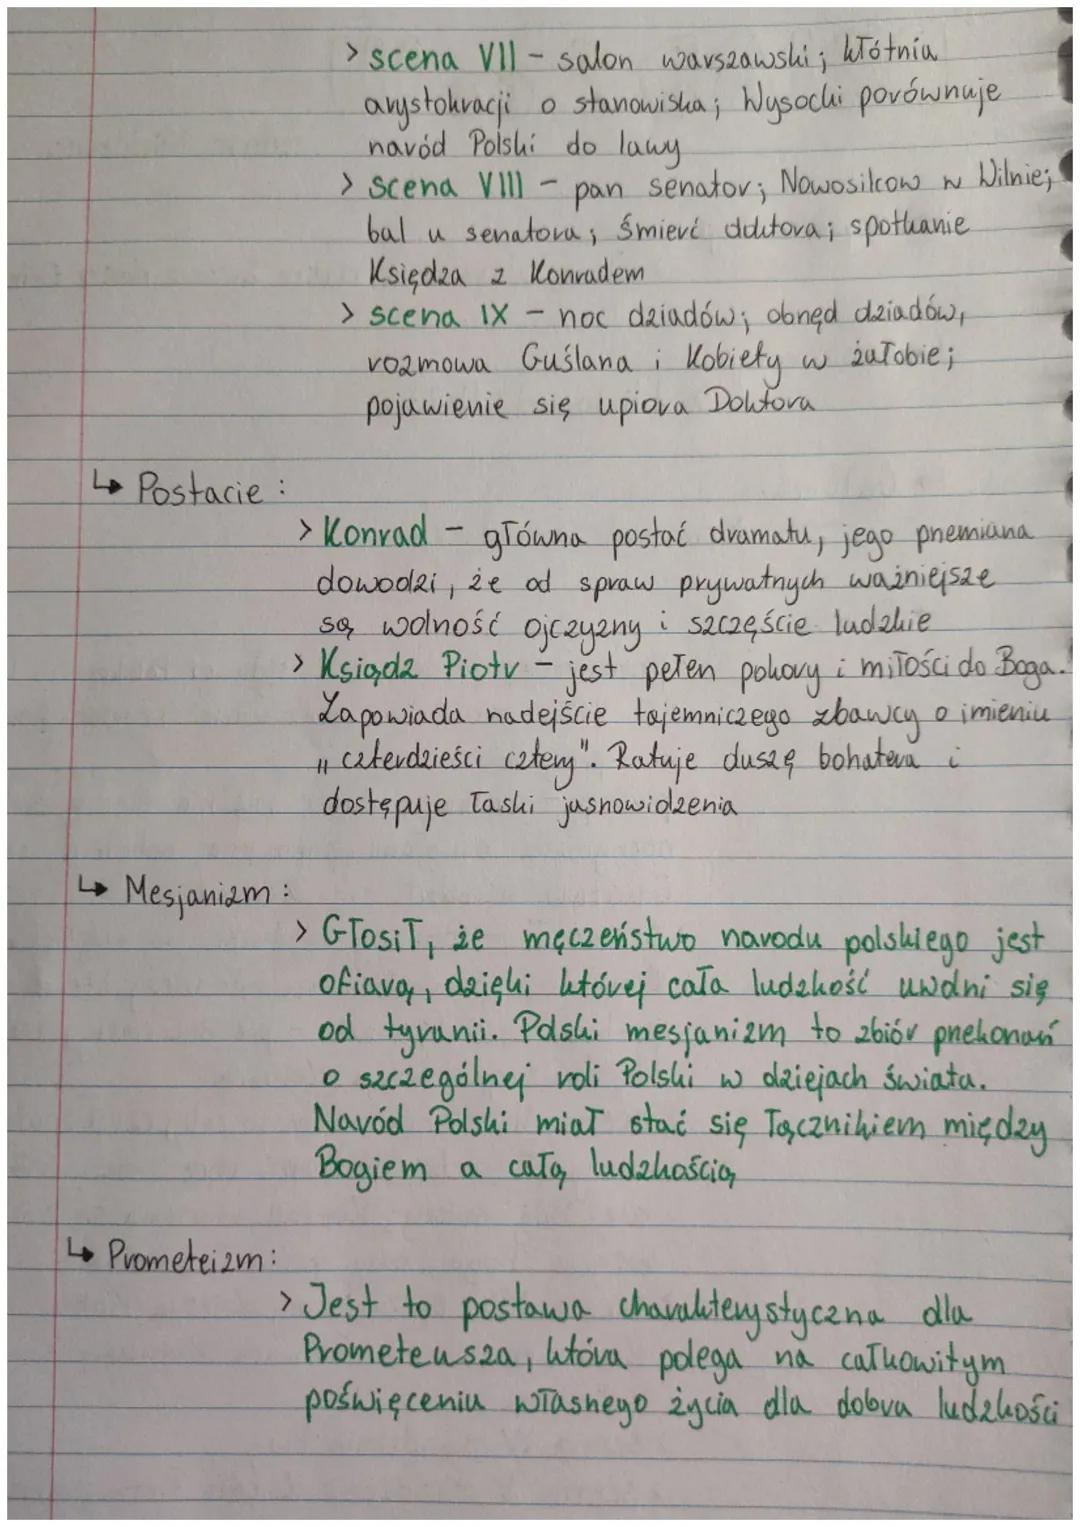 > scena VII - salon warszawski; kłótnia
arystokracji o stanowiska; Wysocki porównuje
naród Polski do lawy
> scena VIII - pan senator; Nowosilcow w Wilnie;
bal u senatora; śmierć doktora; spotkanie
Księdza z Konradem
> scena IX - noc dziadów; obrzęd dziadów,
rozmowa Guślarza i Kobiety w żałobie;
pojawienie się upiora Doktora
↳ Postacie:
> Konrad - główna postać dramatu, jego przemiana
dowodzi, że od spraw prywatnych ważniejsze
są wolność ojczyzny i szczęście ludzkie
> Ksiądz Piotr - jest pełen pokory i miłości do Boga.
Zapowiada nadejście tajemniczego zbawcy o imieniu
„czterdzieści cztery". Ratuje duszę bohatera i
dostępuje łaski jasnowidzenia
↳ Mesjanizm:
> Głosił, że męczeństwo narodu polskiego jest
ofiarą, dzięki której cała ludzkość uwolni się
od tyranii. Polski mesjanizm to zbiór przekonań
o szczególnej roli Polski w dziejach świata.
Naród Polski miał stać się łącznikiem między
Bogiem a całą ludzkością
↳ Prometeizm:
> Jest to postawa charakterystyczna dla
Prometeusza, która polega na całkowitym
poświęceniu własnego życia dla dobra ludzkości